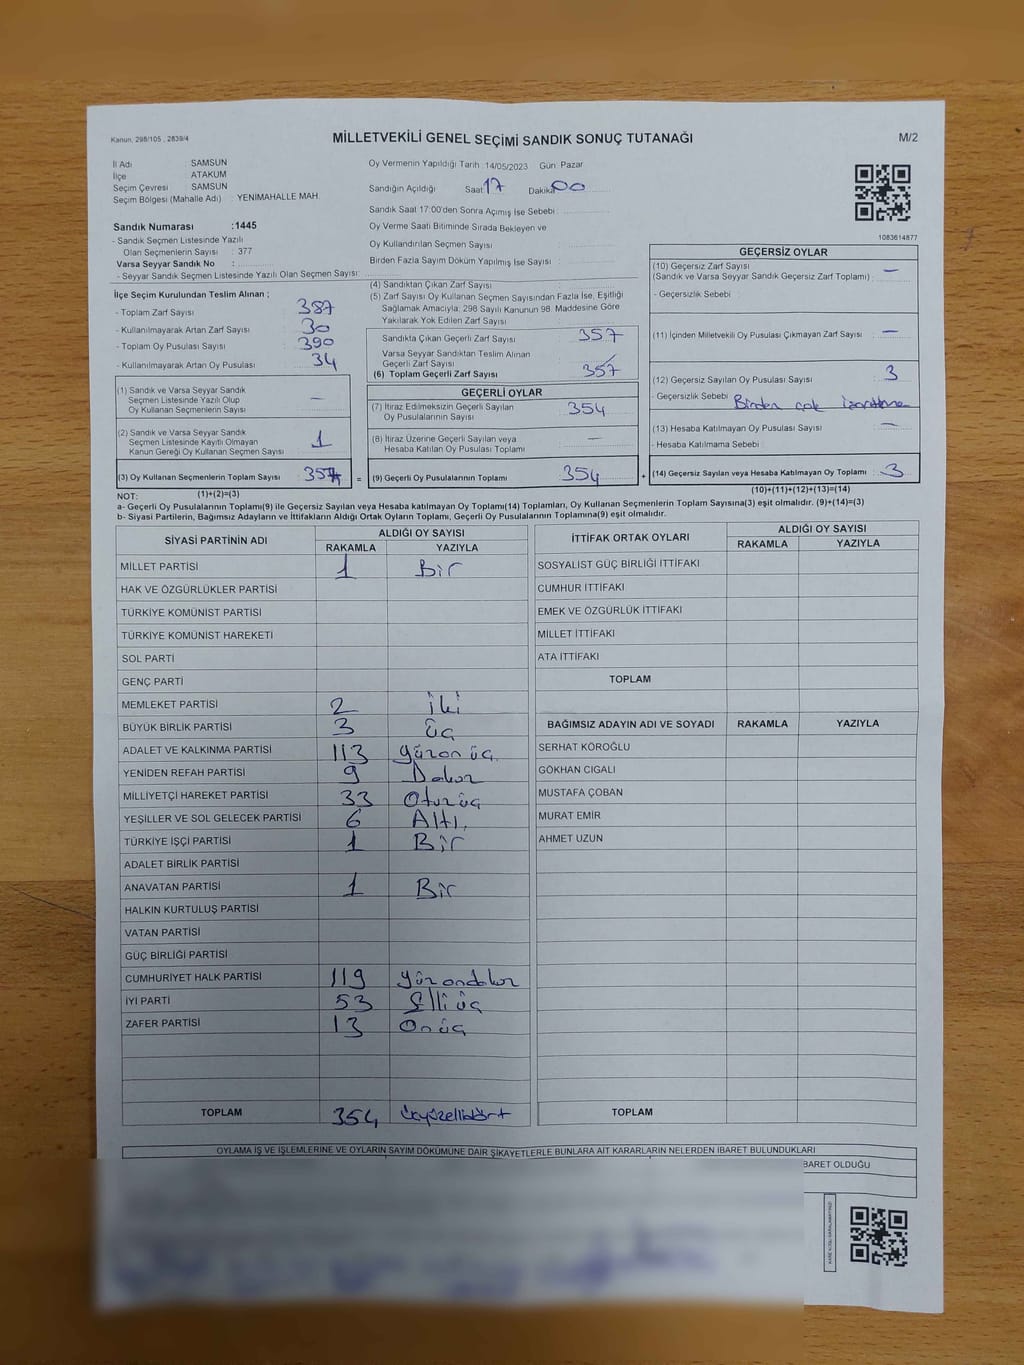 Kanun. 298/105 , 2839/4
MİLLETVEKİLİ GENEL SEÇİMİ SANDIK SONUÇ TUTANAĞI
M/2
İl Adı : SAMSUN
İlçe : ATAKUM
Seçim Çevresi : SAMSUN
Seçim Bölgesi (Mahalle Adı) : YENIMAHALLE MAH.
Sandık Numarası :1445
- Sandık Seçmen Listesinde Yazılı
Olan Seçmenlerin Sayısı : 377
Varsa Seyyar Sandık No :
- Seyyar Sandık Seçmen Listesinde Yazılı Olan Seçmen Sayısı:
Oy Vermenin Yapıldığı Tarih :14/05/2023 Gün :Pazar
Sandığın Açıldığı Saat: 17 Dakika: 00
Sandık Saat 17:00'den Sonra Açımış İse Sebebi :
Oy Verme Saati Bitiminde Sırada Bekleyen ve
Oy Kullandırılan Seçmen Sayısı :
Birden Fazla Sayım Döküm Yapılmış İse Sayısı :
1083614877
İlçe Seçim Kurulundan Teslim Alınan ;
- Toplam Zarf Sayısı : 387
- Kullanılmayarak Artan Zarf Sayısı : 30
- Toplam Oy Pusulası Sayısı : 390
- Kullanılmayarak Artan Oy Pusulası : 34
(1) Sandık ve Varsa Seyyar Sandık
Seçmen Listesinde Yazılı Olup
Oy Kullanan Seçmenlerin Sayısı : —
(2) Sandık ve Varsa Seyyar Sandık
Seçmen Listesinde Kayıtlı Olmayan
Kanun Gereği Oy Kullanan Seçmen Sayısı : 1
(3) Oy Kullanan Seçmenlerin Toplam Sayısı : 357 =
(4) Sandıktan Çıkan Zarf Sayısı :
(5) Zarf Sayısı Oy Kullanan Seçmen Sayısından Fazla İse, Eşitliği
Sağlamak Amacıyla; 298 Sayılı Kanunun 98. Maddesine Göre
Yakılarak Yok Edilen Zarf Sayısı :
Sandıkta Çıkan Geçerli Zarf Sayısı : 357
Varsa Seyyar Sandıktan Teslim Alınan
Geçerli Zarf Sayısı :
(6) Toplam Geçerli Zarf Sayısı : 357
GEÇERLİ OYLAR
(7) İtiraz Edilmeksizin Geçerli Sayılan
Oy Pusulalarının Sayısı : 354
(8) İtiraz Üzerine Geçerli Sayılan veya
Hesaba Katılan Oy Pusulası Toplamı : —
(9) Geçerli Oy Pusulalarının Toplamı : 354 +
GEÇERSİZ OYLAR
(10) Geçersiz Zarf Sayısı
(Sandık ve Varsa Seyyar Sandık Geçersiz Zarf Toplamı) : —
- Geçersizlik Sebebi :
(11) İçinden Milletvekili Oy Pusulası Çıkmayan Zarf Sayısı : —
(12) Geçersiz Sayılan Oy Pusulası Sayısı : 3
- Geçersizlik Sebebi : Birden çok
(13) Hesaba Katılmayan Oy Pusulası Sayısı : —
- Hesaba Katılmama Sebebi :
(14) Geçersiz Sayılan veya Hesaba Katılmayan Oy Toplamı : 3
NOT: (1)+(2)=(3)
(10)+(11)+(12)+(13)=(14)
a- Geçerli Oy Pusulalarının Toplamı(9) ile Geçersiz Sayılan veya Hesaba katılmayan Oy Toplamı(14) Toplamları, Oy Kullanan Seçmenlerin Toplam Sayısına(3) eşit olmalıdır. (9)+(14)=(3)
b- Siyasi Partilerin, Bağımsız Adayların ve İttifakların Aldığı Ortak Oyların Toplamı, Geçerli Oy Pusulalarının Toplamına(9) eşit olmalıdır.
SİYASİ PARTİNİN ADI ALDIĞI OY SAYISI
RAKAMLA YAZIYLA
MİLLET PARTİSİ 1 Bir
HAK VE ÖZGÜRLÜKLER PARTİSİ
TÜRKİYE KOMÜNİST PARTİSİ
TÜRKİYE KOMÜNİST HAREKETİ
SOL PARTİ
GENÇ PARTİ
MEMLEKET PARTİSİ 2 İki
BÜYÜK BİRLİK PARTİSİ 3 Üç
ADALET VE KALKINMA PARTİSİ 113 Yüzon üç
YENİDEN REFAH PARTİSİ 9 Dokuz
MİLLİYETÇİ HAREKET PARTİSİ 33 Otuzüç
YEŞİLLER VE SOL GELECEK PARTİSİ 6 Altı.
TÜRKİYE İŞÇİ PARTİSİ 1 Bir
ADALET BİRLİK PARTİSİ
ANAVATAN PARTİSİ 1 Bir
HALKIN KURTULUŞ PARTİSİ
VATAN PARTİSİ
GÜÇ BİRLİĞİ PARTİSİ
CUMHURİYET HALK PARTİSİ 119 Yüzondokuz
İYİ PARTİ 53 Elli üç
ZAFER PARTİSİ 13 On üç
TOPLAM 354 üçyüzellidört
İTTİFAK ORTAK OYLARI ALDIĞI OY SAYISI
RAKAMLA YAZIYLA
SOSYALIST GÜÇ BİRLİĞİ İTTİFAKI
CUMHUR İTTİFAKI
EMEK VE ÖZGÜRLÜK İTTİFAKI
MİLLET İTTİFAKI
ATA İTTİFAKI
TOPLAM
BAĞIMSIZ ADAYIN ADI VE SOYADI RAKAMLA YAZIYLA
SERHAT KÖROĞLU
GÖKHAN CIGALI
MUSTAFA ÇOBAN
MURAT EMİR
AHMET UZUN
TOPLAM
OYLAMA İŞ VE İŞLEMLERİNE VE OYLARIN SAYIM DÖKÜMÜNE DAİR ŞİKAYETLERLE BUNLARA AİT KARARLARIN NELERDEN İBARET BULUNDUKLARI
BARET OLDUĞU